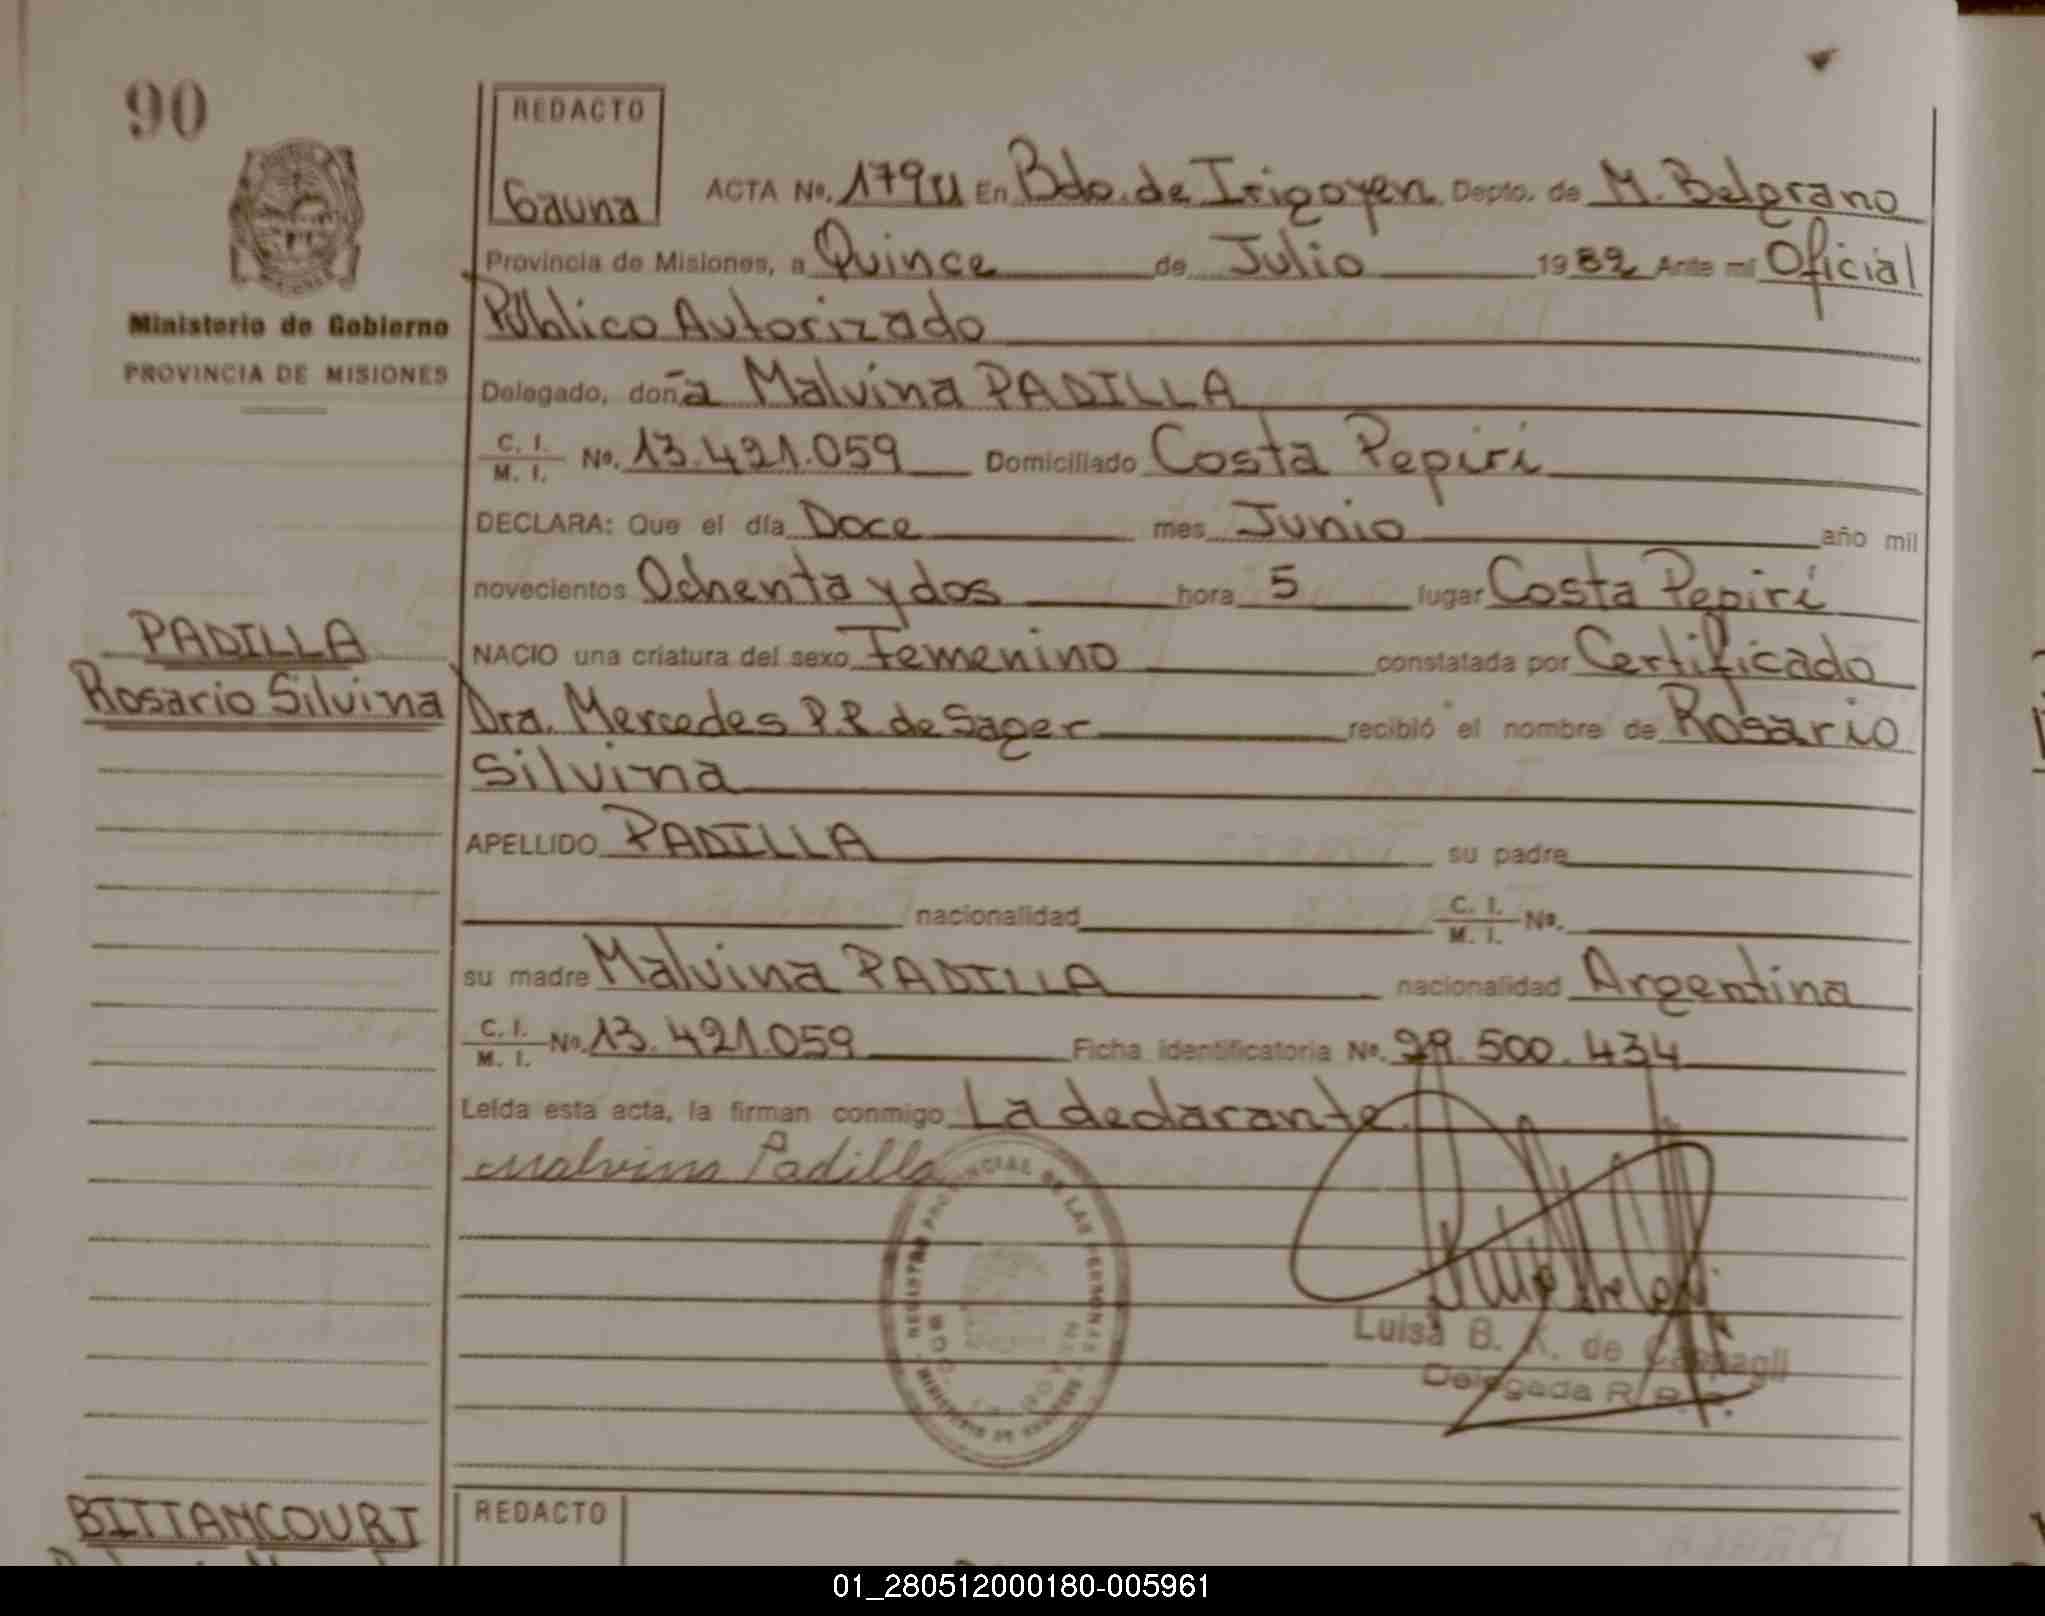 90
REDACTO
Gauna
Ministerio de Gobierno
PROVINCIA DE MISIONES
ACTA No. 179 En Bdo. de Irigoyen Depto. de M. Belgrano
Provincia de Misiones, a Quince de Julio 1982 Ante mi Oficial
Público Autorizado
Delegado, doña Malvina PADILLA
C. I.
M. I. No. 13.421.059 Domiciliado Costa Pepirí
DECLARA: Que el día Doce mes Junio año mil
novecientos Ochenta y dos hora 5 lugar Costa Pepirí
NACIO una criatura del sexo Femenino constatada por Certificado
Dra. Mercedes P.R. de Sager recibió el nombre de Rosario
Silvina
PADILLA
Rosario Silvina
APELLIDO PADILLA su padre
nacionalidad C. I.
M. I. No.
su madre Malvina PADILLA nacionalidad Argentina
C. I.
M. I. No. 13.421.059 Ficha identificatoria No. 29.500.434
Leída esta acta, la firman conmigo La declarante
Malvina Padilla
REGISTRO PROVINCIAL DE LAS PERSONAS
MINISTERIO DE GOBIERNO
Luisa B. K. de
Delegada R. P. P.
BITTANCOURT
REDACTO
01_280512000180-005961